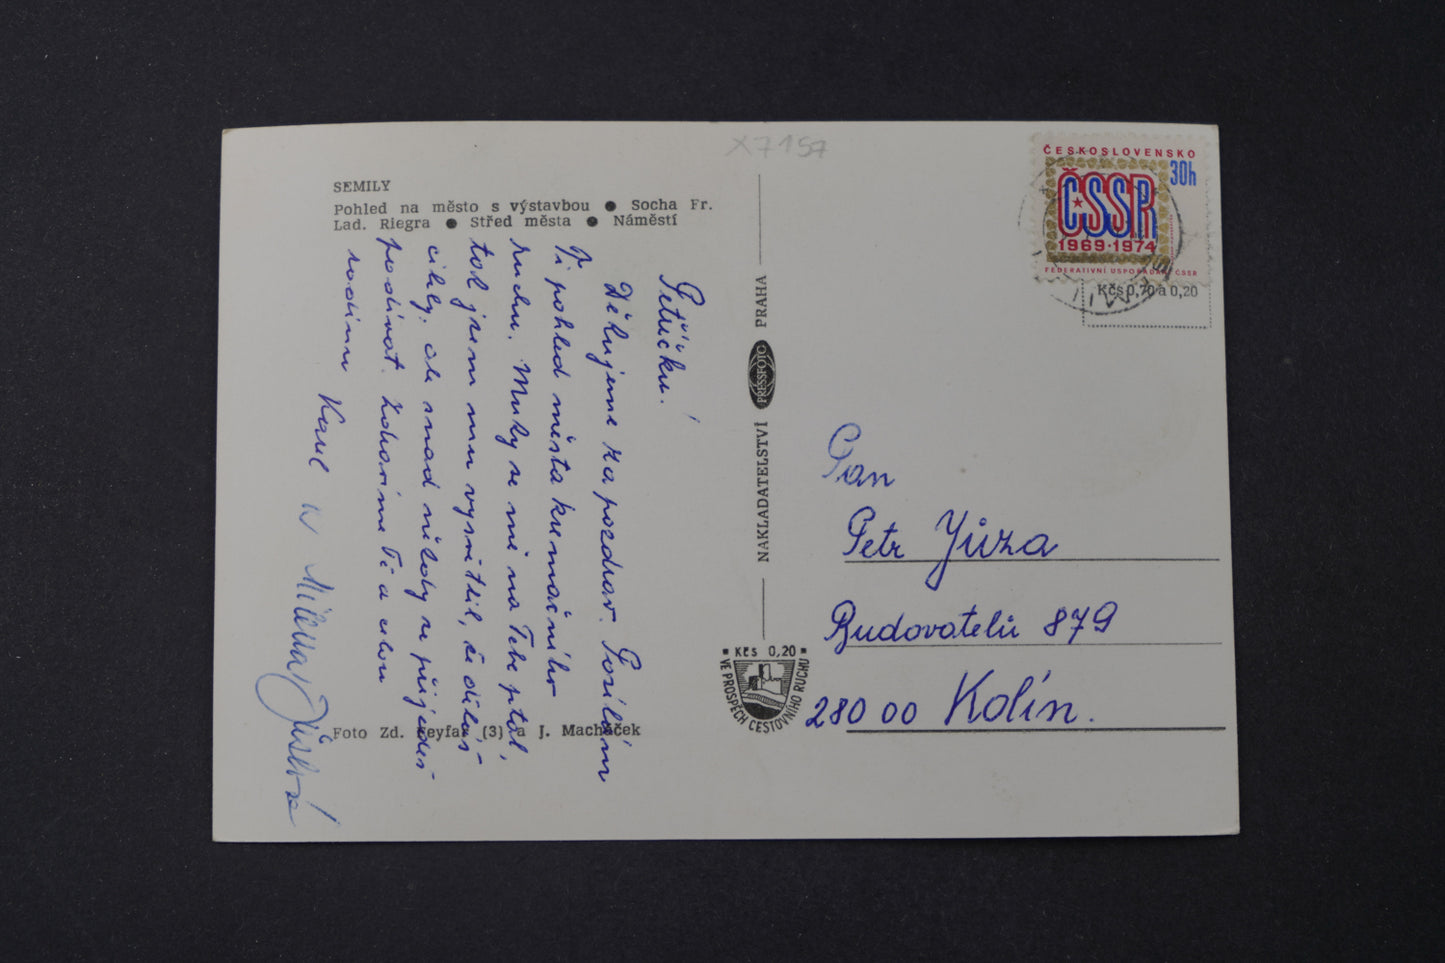 X7157
SEMILY
Pohled na město s výstavbou ● Socha Fr.
Lad. Riegra ● Střed města ● Náměstí
Petříčku!
Děkujeme za pozdrav. Posílám
Ti pohled města
ruchu. se mě na Tebe ptal,
tak jsem mu vysvětlil, že děláš
cihly, ale snad někdy se přijedeš
podívat. Zdravíme Tě a celou
rodinu
Karel a Milena
Foto Zd. Feyfar (3) a J. Macháček
NAKLADATELSTVÍ PRESSFOTO PRAHA
Kčs 0,20
VE PROSPĚCH CESTOVNÍHO RUCHU
ČESKOSLOVENSKO
30h
ČSSR
1969·1974
FEDERATIVNÍ USPOŘÁDÁNÍ ČSSR
Kčs 0,70 a 0,20
Pan
Petr Jůza
Budovatelů 879
280 00 Kolín.